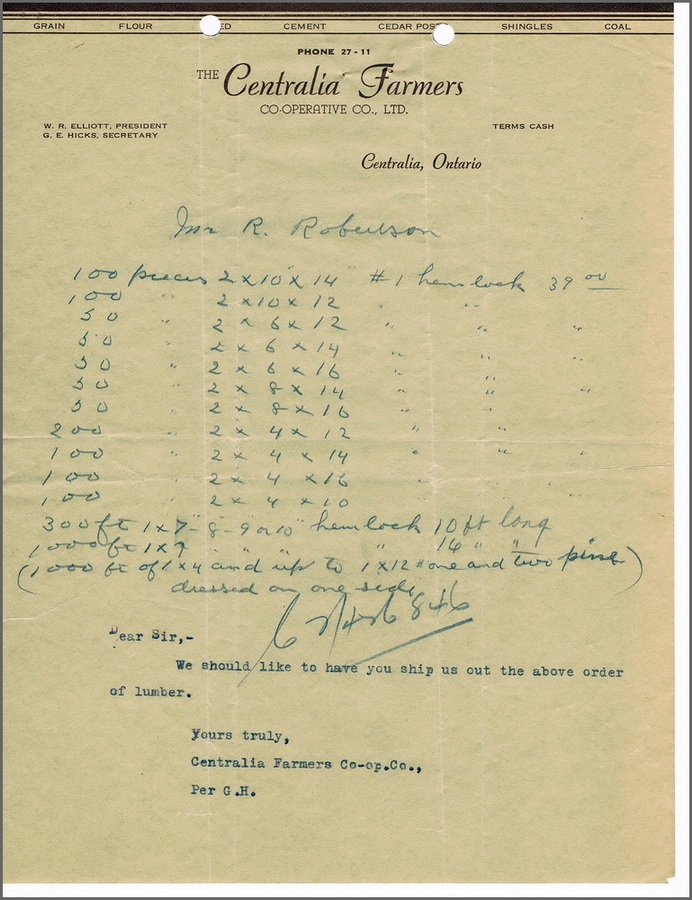 GRAIN FLOUR CEMENT CEDAR POSTS SHINGLES COAL
PHONE 27-11
THE Centralia Farmers
CO-OPERATIVE CO., LTD.
W. R. ELLIOTT, PRESIDENT
G. E. HICKS, SECRETARY
TERMS CASH
Centralia, Ontario
Mr R. Robertson
100 pieces 2 x 10 x 14 #1 hemlock 39 00
100 " 2 x 10 x 12 " "
50 2 x 6 x 12 " " "
50 2 x 6 x 14 " "
50 " 2 x 6 x 16 " "
50 2 x 8 x 14 " " "
50 " 2 x 8 x 16 " "
200 " 2 x 4 x 12 " " "
100 " 2 x 4 x 14 " "
100 " 2 x 4 x 16 " " "
100 " 2 x 4 x 10
300 ft 1x7-8-9 or 10" hemlock 10 ft long
1000 ft 1x7 " " " 16 " "
(1000 ft of 1x4 and up to 1x12 # one and two pine)
dressed on one side
Dear Sir,-
We should like to have you ship us out the above order
of lumber.
Yours truly,
Centralia Farmers Co-op.Co.,
Per G.H.